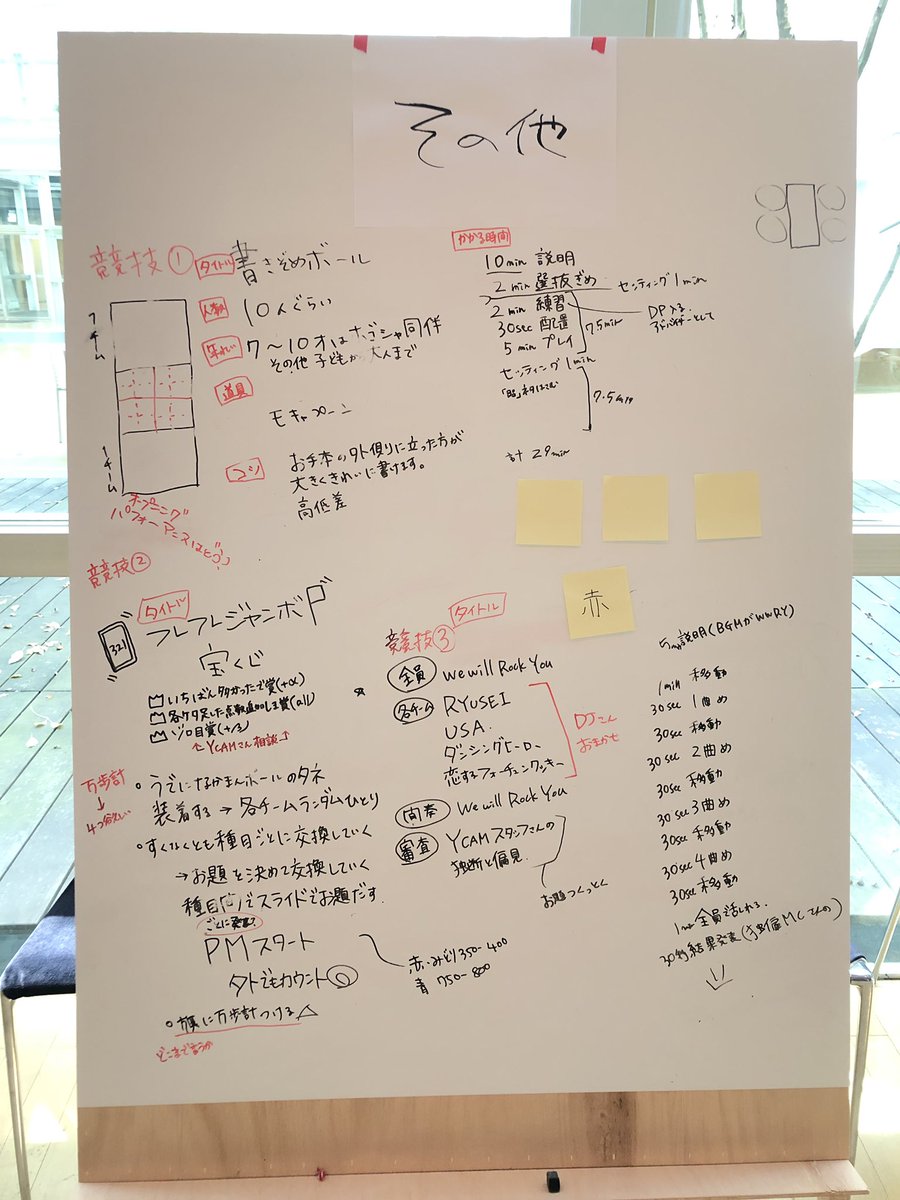 その他
競技① タイトル 書きぞめボール
人数 10人ぐらい
7〜10才は 同伴
その他 子どもから大人まで
道具
モキャプーン
コツ お手本の外側に立った方が
大きくきれいに書けます。
高低差
1チーム
1チーム
オープニング
パフォーマンスはどう
かかる時間
10min 説明
2min 選抜ぎめ セッティング1min
2min 練習
30sec 配置
5min プレイ
7.5min
セッティング1min
計 29min
赤
競技②
タイトル
321
フレフレジャンボP
宝くじ
いちばん多かったで賞(+α)
各ケタ足した点数追加しま賞(all)
ゾロ目賞
↑YCAMさん相談↑
万歩計
↓
4つ欲しい
・うでになかまんボールのタネ
装着する→各チームランダムひとり
・すくなくとも種目ごとに交換していく
→お題を決めて交換していく
種目 スライドでお題だす.
ごとに
PMスタート
外でもカウント
赤・みどり350-400
青 750-800
・旗に万歩計つける△
どこまで言うか
競技③ タイトル
全員 We will Rock You
各チーム RYUSEI
USA.
ダンシングヒーロー
恋するフォーチュンクッキー
DJさん
おまかせ
間奏 We will Rock You
審査 YCAMスタッフさんの
独断と偏見.
お題つくっとく
説明(BGMがWWRY)
1min 移動
30sec 1曲め
30sec 移動
30sec 2曲め
30sec 移動
30sec 3曲め
30sec 移動
30sec 4曲め
30sec 移動
全員で
30秒 結果発表